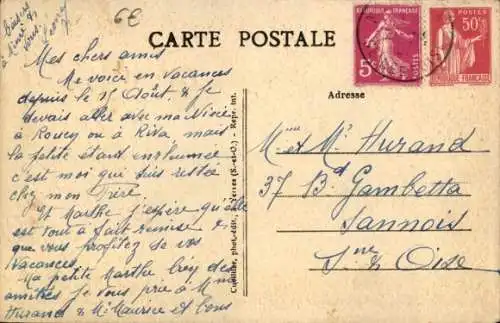 6€
bisous
à René &
vous
CARTE POSTALE
RÉPUBLIQUE FRANÇAISE
5
POSTES
50c
RÉPUBLIQUE FRANÇAISE
Adresse
Mes chers amis
Me voici en vacances
depuis le 15 Août. & je
devais aller avec ma Nièce
à Roucy ou à Riva mais
la petite étant enrhumée
c'est moi qui suis restée
chez mon Frère.
Et Marthe j'espère qu'elle
est tout à fait remise &
que vous profitez de vos
vacances.
Ma petite Marthe des
amitiés je vous prie à Mme
Hurand & Mr Maurice et bons
phot.-édit., Yerres (S.-et-O.) - Repr. int.
Mme et Mr Hurand
37 Bd Gambetta
Sannois
Sne & Oise